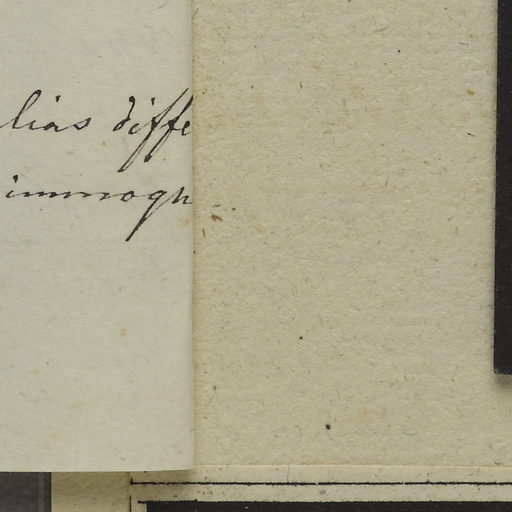 lias diffe
immogn